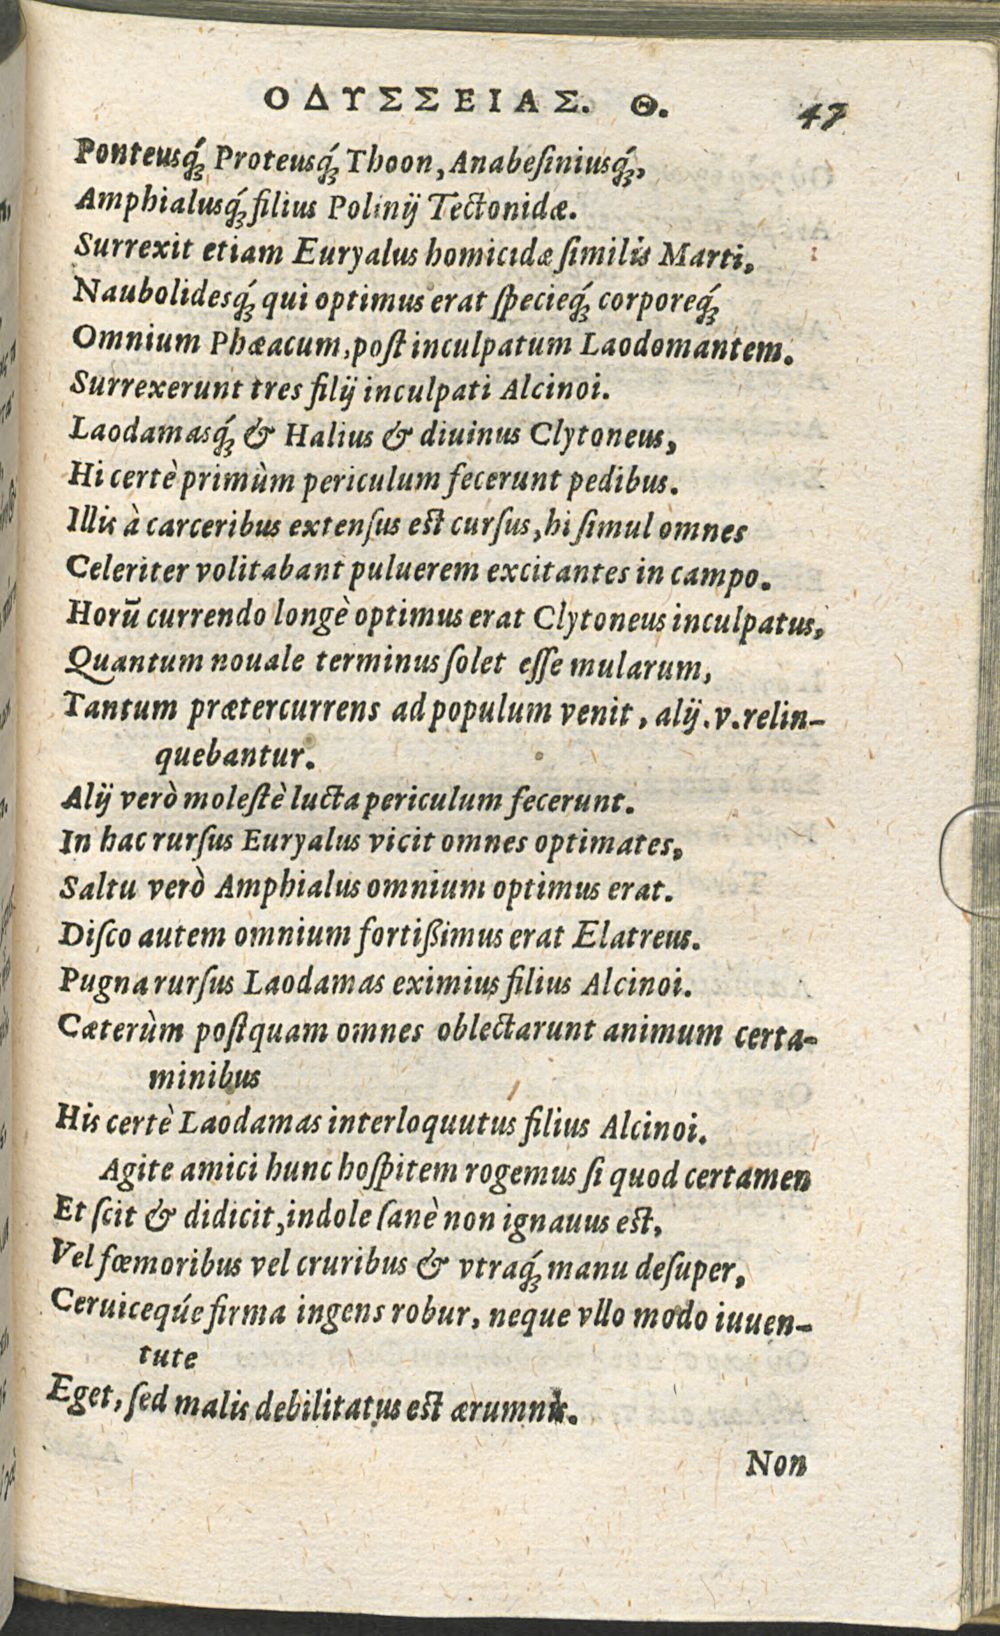 ΟΔΥΣΣΕΙΑΣ. Θ. 47
Ponteusq́ꝫ Proteusq́ꝫ Thoon, Anabeſiniusq́ꝫ,
Amphialusq́ꝫ filius Polinij Tectonidæ.
Surrexit etiam Euryalus homicidæ ſimilis Marti,
Naubolidesq́ꝫ qui optimus erat ſpecieq́ꝫ corporeq́ꝫ
Omnium Phæacum, poſt inculpatum Laodomantem.
Surrexerunt tres filij inculpati Alcinoi.
Laodamasq́ꝫ & Halius & diuinus Clytoneus,
Hi certè primùm periculum fecerunt pedibus.
Illis à carceribus extenſus eſt curſus, hi ſimul omnes
Celeriter volitabant puluerem excitantes in campo.
Horū currendo longè optimus erat Clytoneus inculpatus,
Quantum nouale terminus ſolet eſſe mularum,
Tantum prætercurrens ad populum venit, alij.v.relin-
quebantur.
Alij verò moleſtè lucta periculum fecerunt.
In hac rurſus Euryalus vicit omnes optimates,
Saltu verò Amphialus omnium optimus erat.
Diſco autem omnium fortißimus erat Elatreus.
Pugna rurſus Laodamas eximius filius Alcinoi.
Cæterùm poſtquam omnes oblectarunt animum certa-
minibus
His certè Laodamas interloquutus filius Alcinoi.
Agite amici hunc hoſpitem rogemus ſi quod certamen
Et ſcit & didicit, indole ſanè non ignauus eſt,
Vel fœmoribus vel cruribus & vtraq́ꝫ manu deſuper,
Ceruiceqúe firma ingens robur, neque vllo modo iuuen-
tute
Eget, ſed malis debilitatus eſt ærumnis.
Non